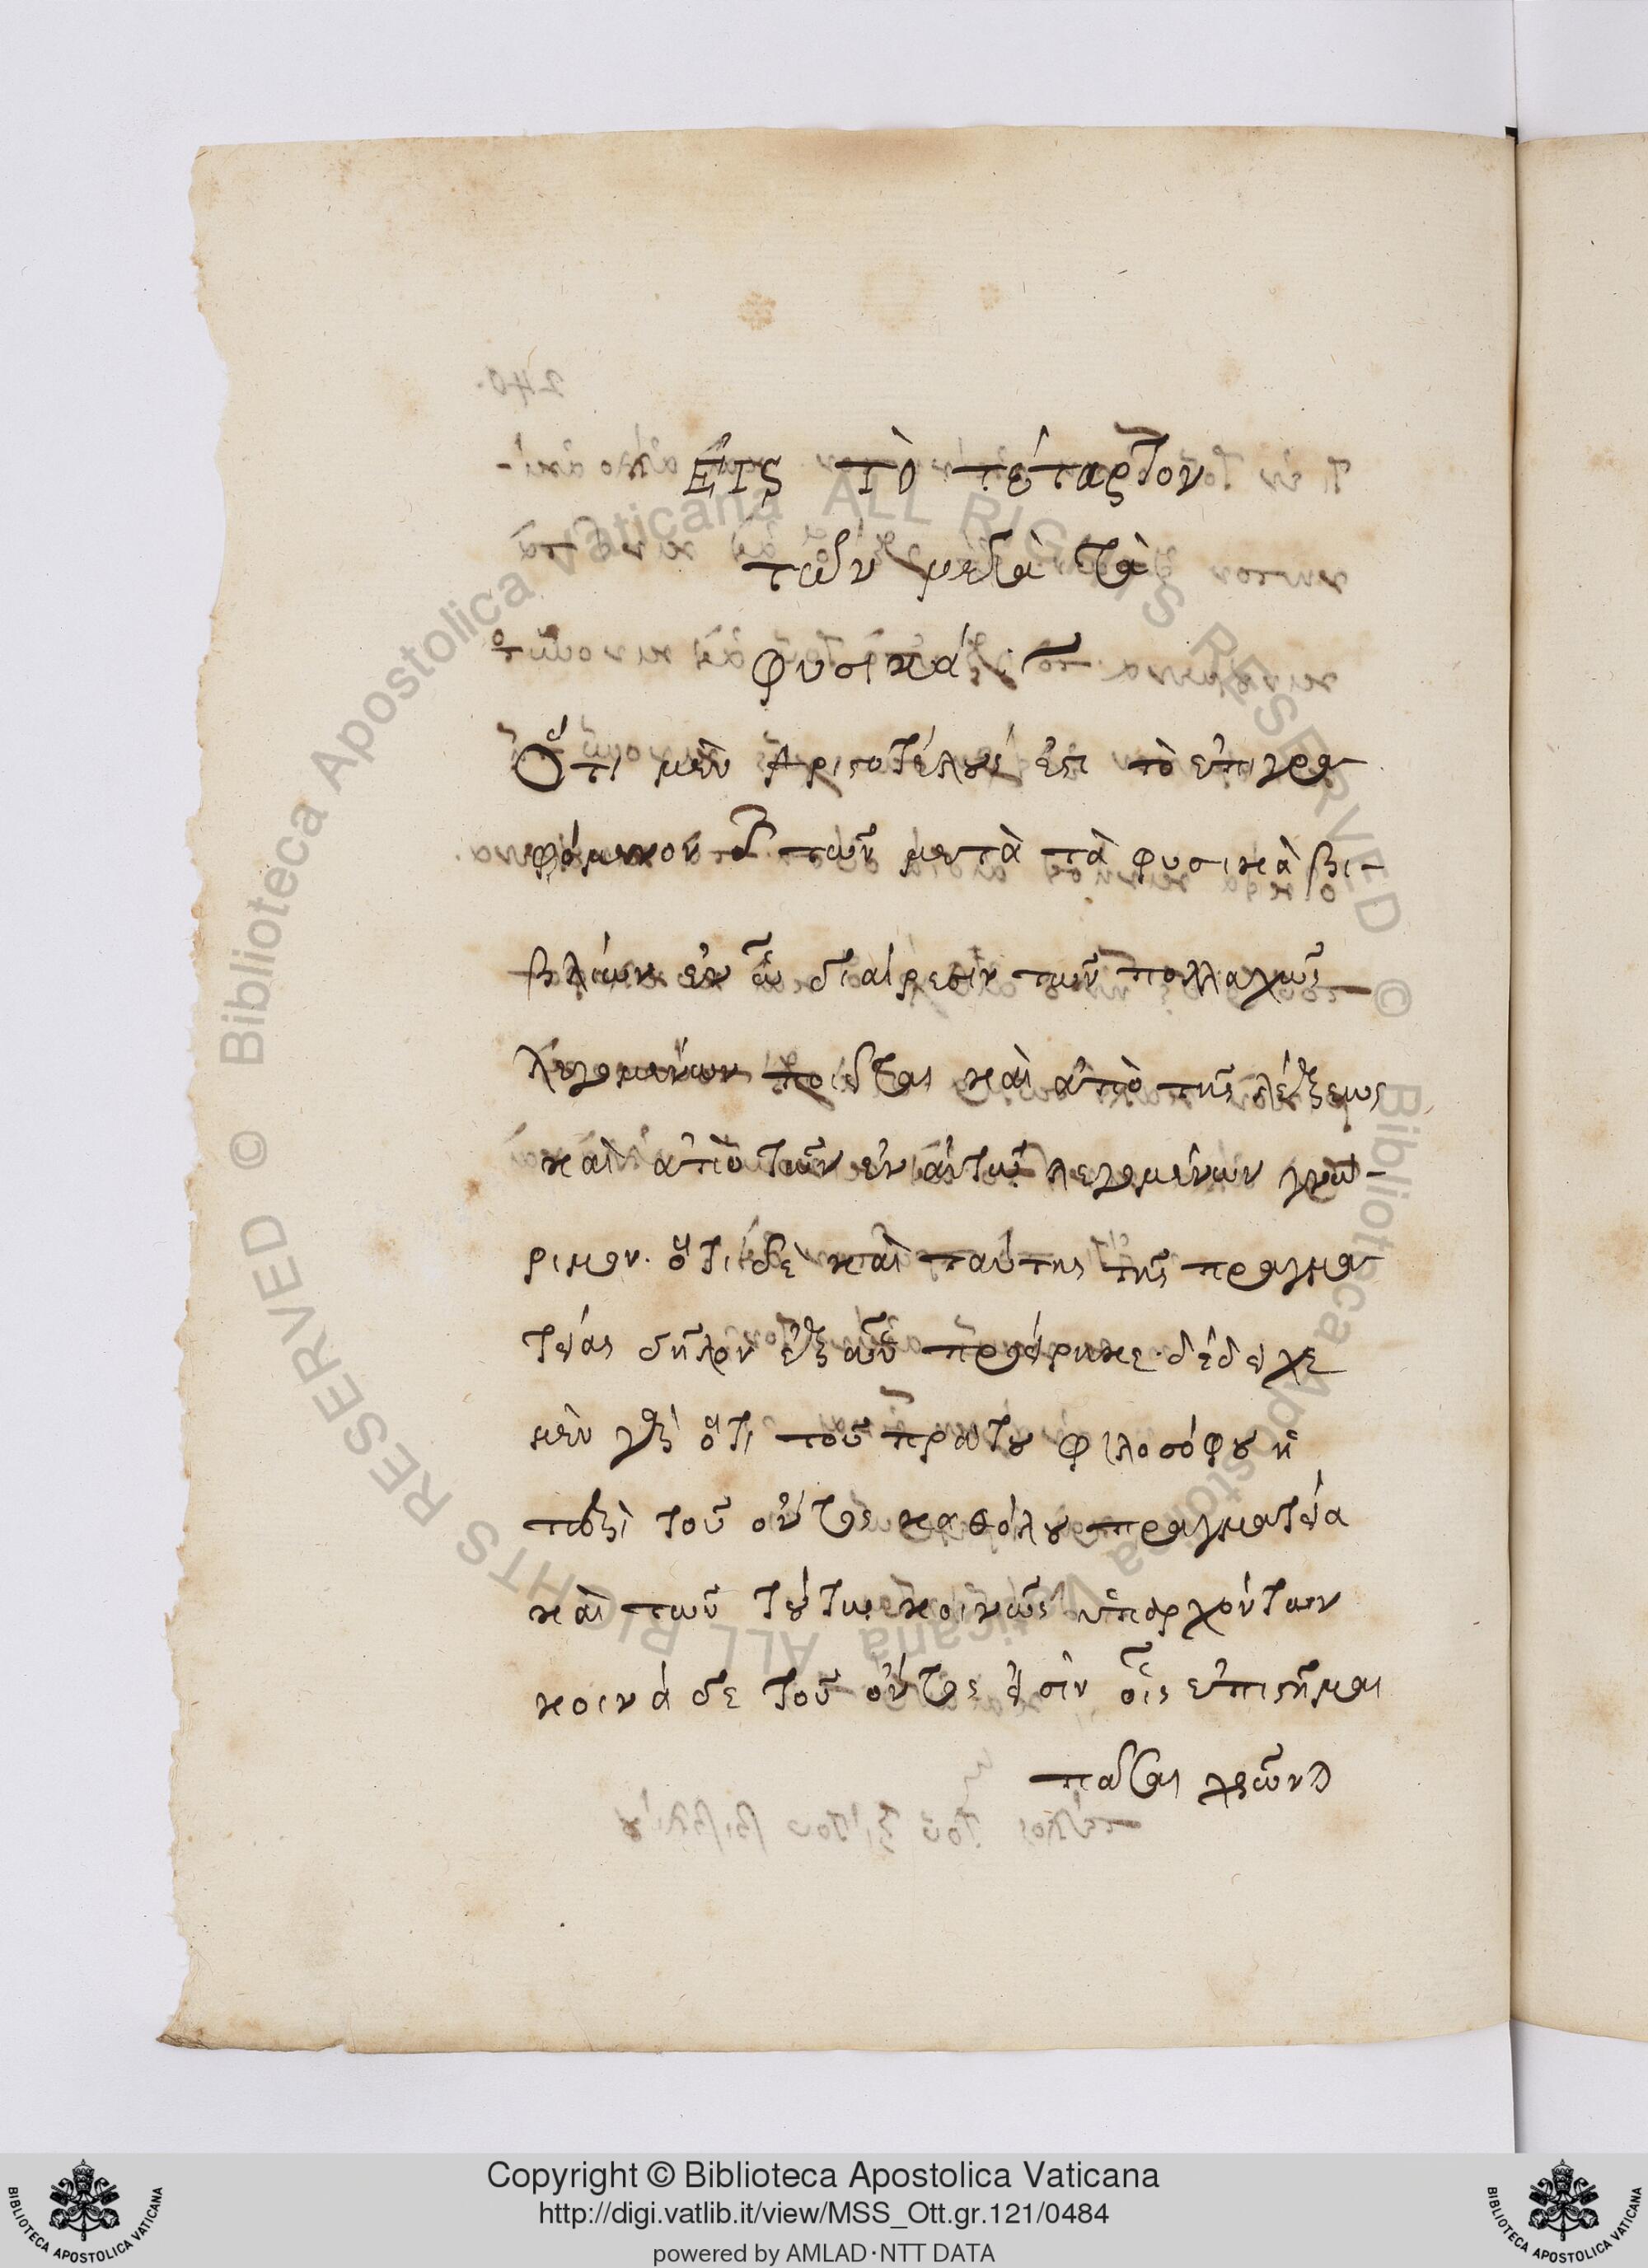 Εἰς τὸ τέταρτον
τῶν μετὰ τὰ
φυσικά
Ὅτι μὲν Ἀριστοτέλους ἐστι τὸ ἐπιγρα
φόμενον δ τῶν μετὰ τὰ φυσικὰ βι-
βλίων ἐν ᾧ διαίρεσιν τῶν πολλαχῶς
λεγομένων ποιεῖται καὶ ἀπὸ τῆς λέξεως
καὶ ἀπὸ τῶν ἐν αὐτῷ λεγομένων γνώ-
ριμον. ὅτι δὲ καὶ ταύτης τῆς πραγμα
τείας δῆλον ἐξ ὧν προείρηκε. δέδειχε
μὲν γὰρ ὅτι τοῦ πρώτου φιλοσόφου ἡ
περὶ τοῦ ὄντος καθόλου πραγματεία
καὶ τῶν τούτῳ κοινῶς ὑπαρχόντων
κοινά δε τοῦ ὄντος εἰσὶν οἷς ἐπιστῆμαι
πᾶσαι χρῶντ
Copyright © Biblioteca Apostolica Vaticana
http://digi.vatlib.it/view/MSS_Ott.gr.121/0484
powered by AMLAD·NTT DATA
BIBLIOTECA APOSTOLICA VATICANA
BIBLIOTECA APOSTOLICA VATICANA
© Biblioteca Apostolica Vaticana ALL RIGHTS RESERVED
© Biblioteca Apostolica Vaticana ALL RIGHTS RESERVED